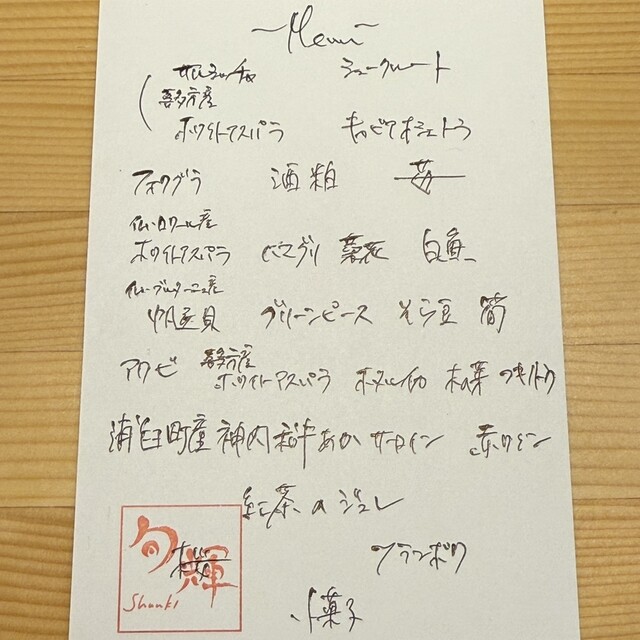 ~Menu~
シュークルート
喜多方産
ホワイトアスパラ キャビアオシェトラ
フォワグラ 酒粕 苺
仏・ロワール産
ホワイトアスパラ 白魚
仏・ブルターニュ産
帆立貝 グリーンピース そら豆 筍
アワビ 喜多方産
ホワイトアスパラ ホタルイカ 木の芽
浦臼町産 神内和牛あか サーロイン 赤ワイン
紅茶のジュレ
桜 フランボワ
小菓子
旬輝
Shunki